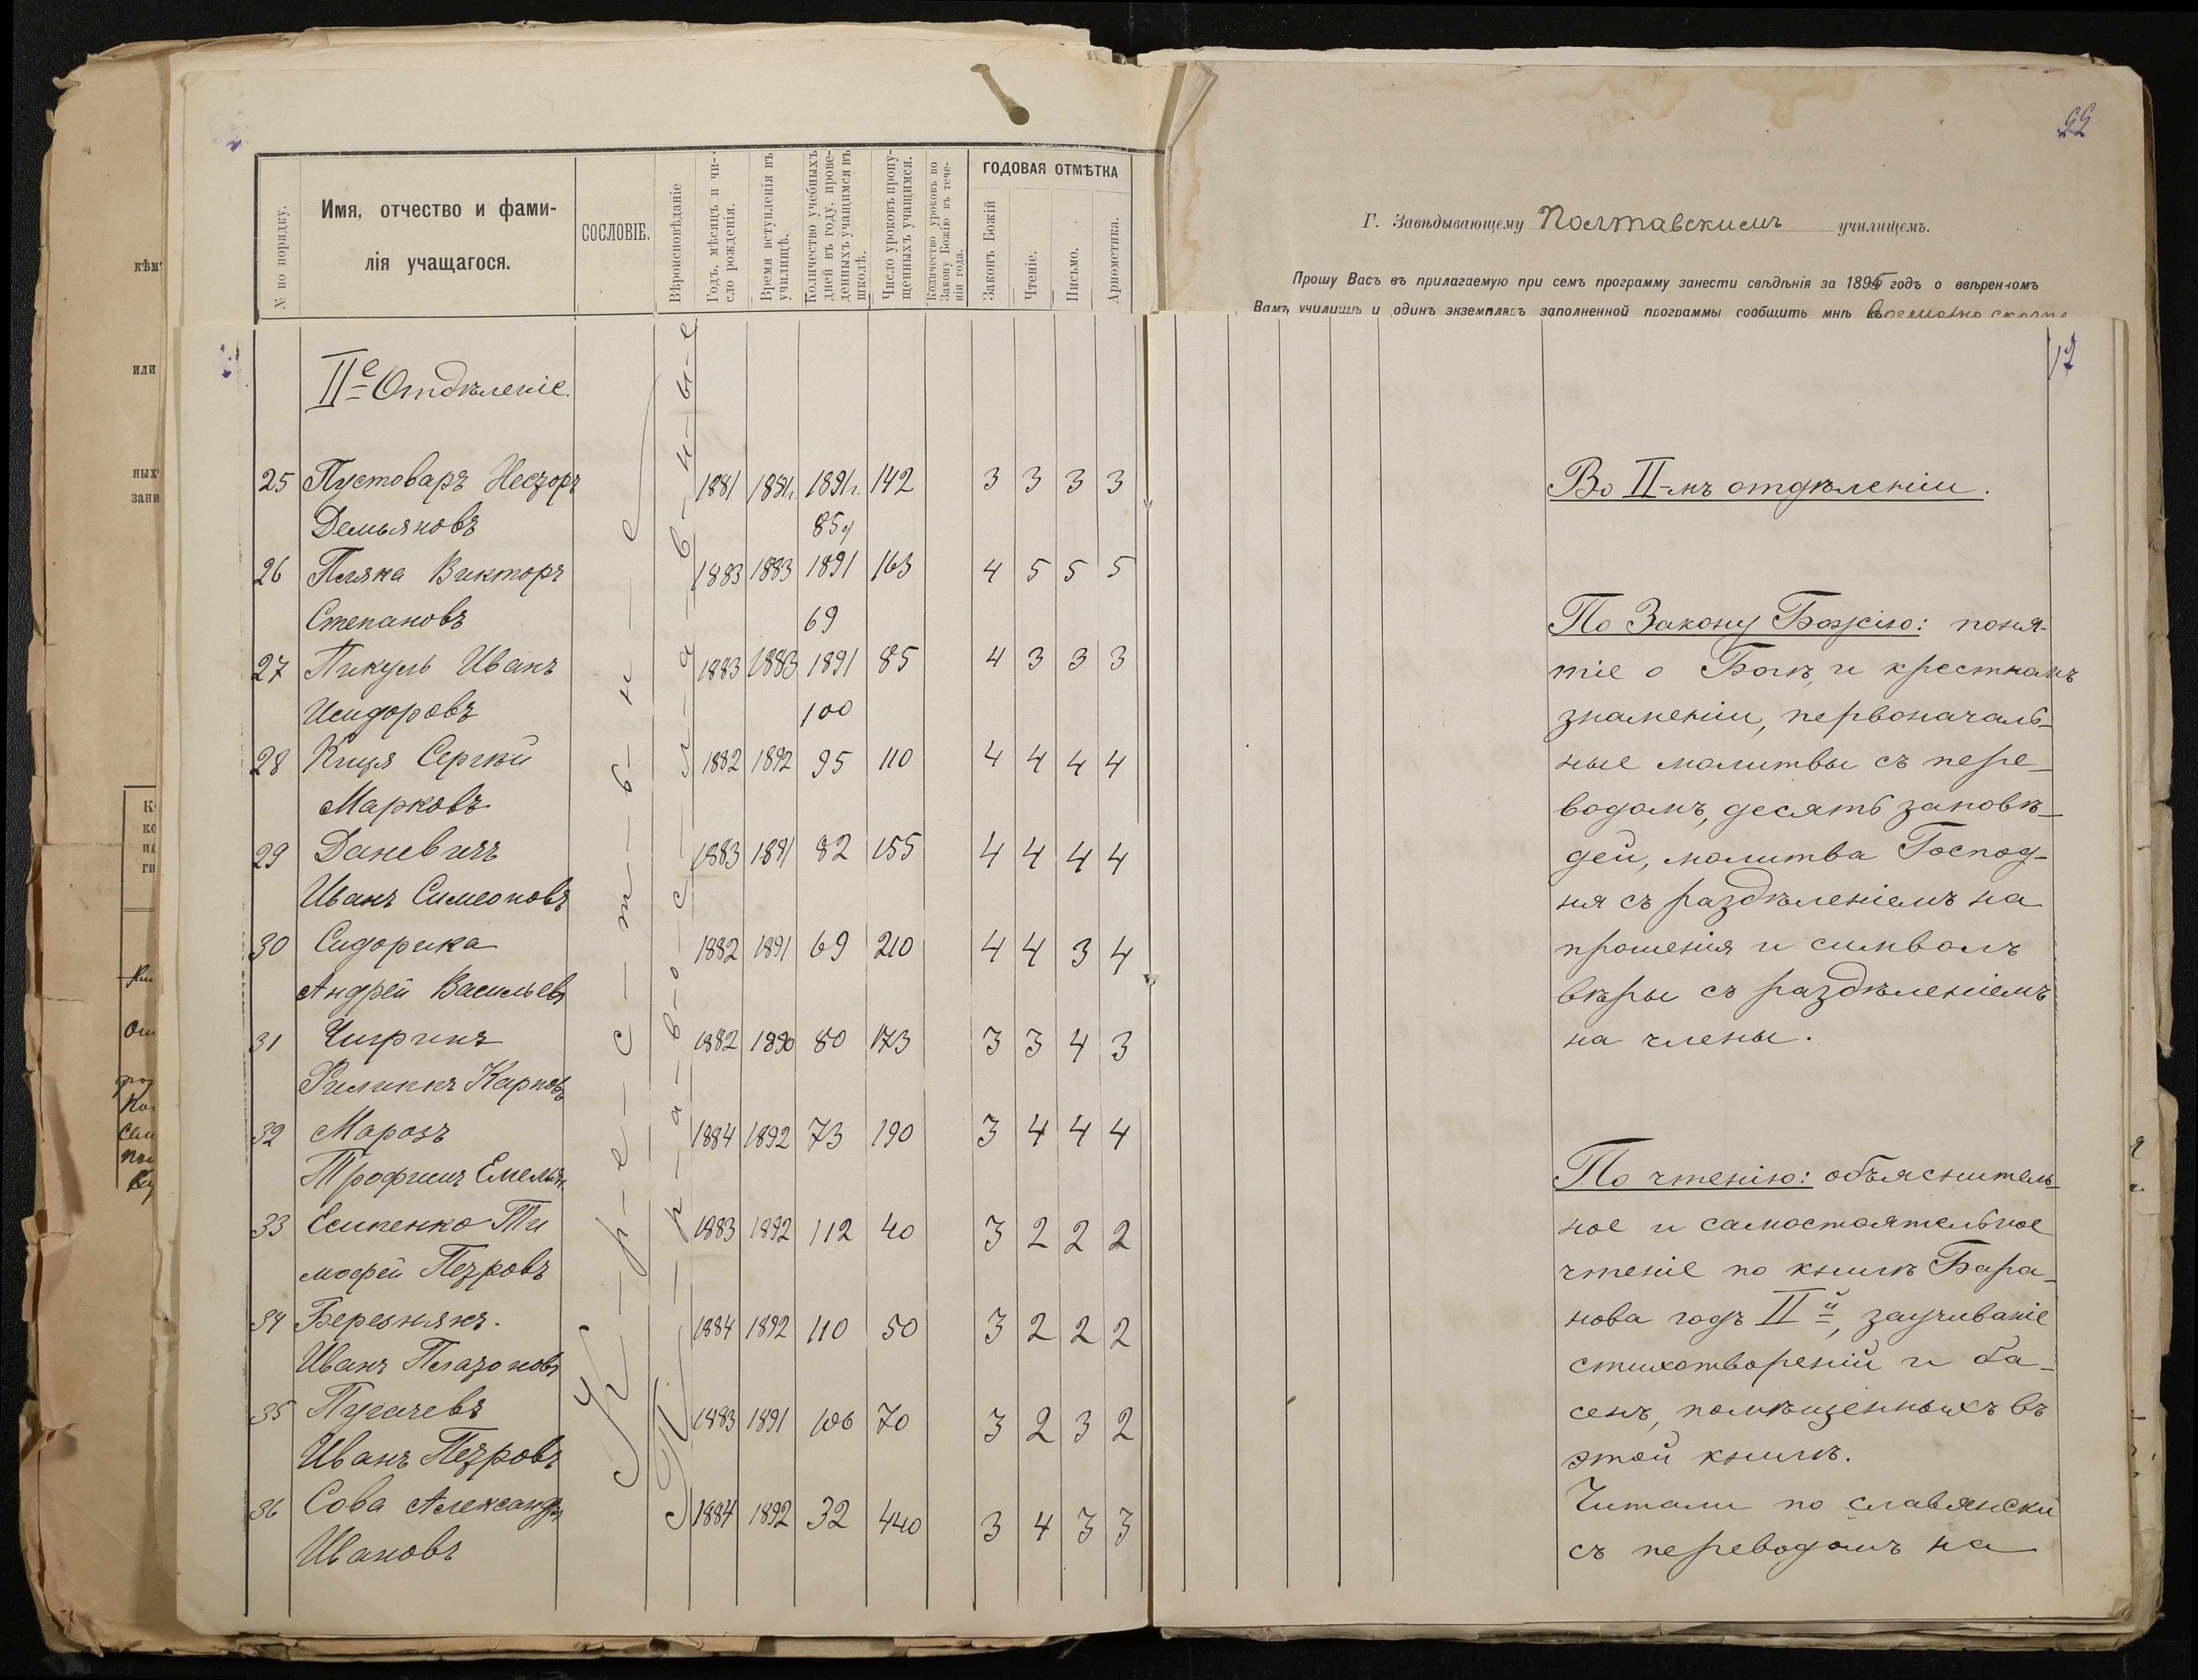 № по порядку.
Имя, отчество и фами-
лія учащагося.
СОСЛОВІЕ.
Вѣроисповѣданіе
Годъ, мѣсяцъ и чи-
сло рожденія.
Время вступленія въ
училищѣ.
Количество учебныхъ
дней въ году, прове-
денныхъ учащимся въ
школѣ.
Число уроковъ пропу-
щенныхъ учащимся.
Количество уроковъ по
Закону Божію въ тече-
ніи года.
ГОДОВАЯ ОТМѢТКА
Законъ Божій
Чтеніе.
Письмо.
Ариѳметика.
IIе Отдѣленіе.
К-р-е-с-т-ь-н-е
П-р-а-в-о-с-л-а-в-н-ы-е
25 Пустоваръ Несторъ 1881 1891г. 1891г. 142 3 3 3 3
Демьяновъ 85д
26 Пляка Викторъ 1883 1883 1891 163 4 5 5 5
Степановъ 69
27 Пикуль Иванъ 1883 1883 1891 85 4 3 3 3
Исидоровъ 100
28 Кищя Сергѣй 1882 1892 95 110 4 4 4 4
Марковъ
29 Даневичъ 1883 1891 82 155 4 4 4 4
Иванъ Симеоновъ
30 Сидорика 1882 1891 69 210 4 4 3 4
Андрей Васильевъ
31 Чигринъ 1882 1890 80 173 3 3 4 3
Филиппъ Карповъ
32 Марозъ 1884 1892 73 190 3 4 4 4
Трофимъ Емельян.
33 Есипенко Ти 1883 1892 112 40 3 2 2 2
мофей Петровъ
34 Березнякъ. 1884 1892 110 50 3 2 2 2
Иванъ Платоновъ
35 Пугачевъ 1883 1891 106 70 3 2 3 2
Иванъ Петровъ
36 Сова Александръ 1884 1892 32 440 3 4 3 3
Ивановъ
Г. Завѣдывающему Полтавскимъ училищемъ.
Прошу Васъ въ прилагаемую при семъ программу занести свѣдѣнія за 1895 годъ о ввѣренномъ
Вамъ училищѣ и одинъ экземпляръ заполненной программы сообщить мнѣ
12
Во II-мъ отдѣленіи.
По Закону Божію: поня-
тіе о Богѣ, и крестномъ
знаменіи, первоначаль-
ные молитвы съ пере-
водомъ, десять заповѣ-
дей, молитва Господ-
ня съ раздѣленіемъ на
прошенія и символъ
вѣры съ раздѣленіемъ
на члены.
По чтенію: объяснитель-
ное и самостоятельное
чтеніе по книгѣ Бара-
нова годъ IIй, заучиваніе
стихотвореній и ба-
сенъ, помѣщенныхъ въ
этой книгѣ.
Читали по славянски
съ переводомъ на